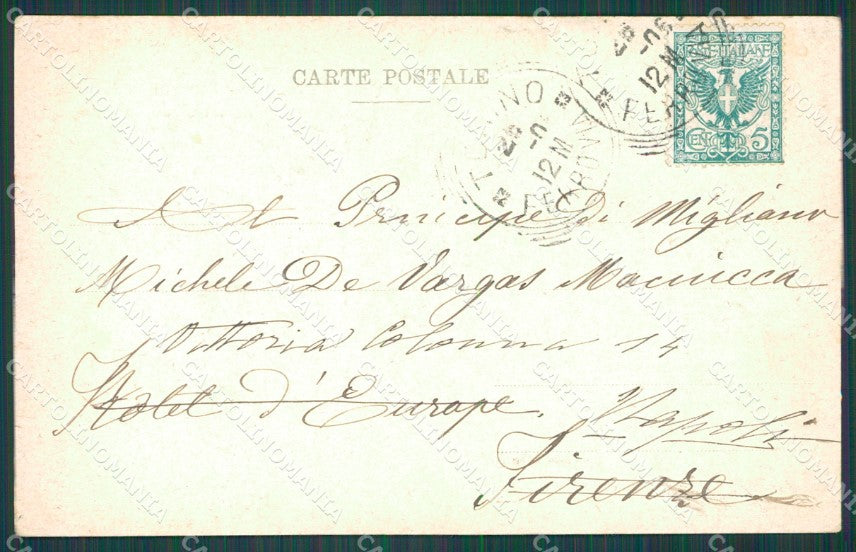 CARTE POSTALE
TORINO FERROVIA
12 M
POSTE ITALIANE
CENT. 5
Al Principe Di Migliano
Michele De Vargas Maciucca
Vittoria Colonna 14
Hotel d'Europe. Napoli
Firenze
CARTOLINOMANIA